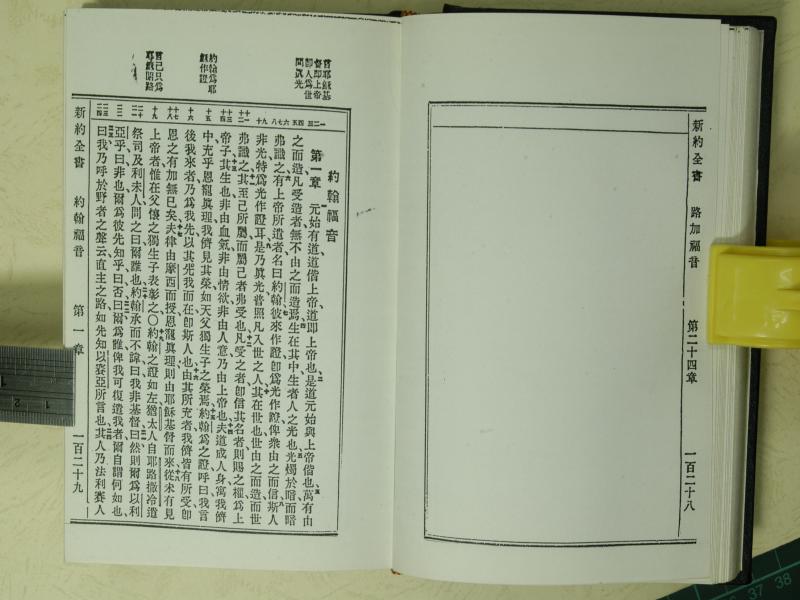 新約全書　路加福音　第二十四章　一百二十八
首耶穌基
督即上帝
即人爲世
間眞光
約翰爲耶
穌作證
約翰福音
第一章　元始有道道偕上帝道即上帝也是道元始與上帝偕也萬有由
之而造凡受造者無不由之而造焉生在其中生者人之光也光燭於暗而暗
弗識之有上帝所遣者名曰約翰彼來作證即爲光作證俾衆由之而信斯人
非光特爲光作證耳是乃眞光普照凡入世之人其在世也世由之而造而世
弗識之其至己所屬而屬己者弗受也凡受之者即信其名者則賜之權爲上
帝子其生也非由血氣非由情欲非由人意乃由上帝也夫道成人身寓我儕
中充乎恩寵眞理我儕見其榮如天父獨生子之榮焉約翰爲之證呼曰我言
後我來者乃爲我先以其先我而在即斯人也由其所充者我儕皆有所受即
恩之有加無已矣夫律由摩西而授恩寵眞理則由耶穌基督而來從未有見
上帝者惟在父懷之獨生子表彰之〇約翰之證如左猶太人自耶路撒冷遣
祭司及利未人問之曰爾誰也約翰承而不諱曰我非基督曰然則爾爲以利
亞乎曰非也爾爲彼先知乎曰否曰爾爲誰俾我可復遣我者爾自謂何如也
曰我乃呼於野者之聲云直主之路如先知以賽亞所言也其人乃法利賽人
新約全書　約翰福音　第一章　一百二十九